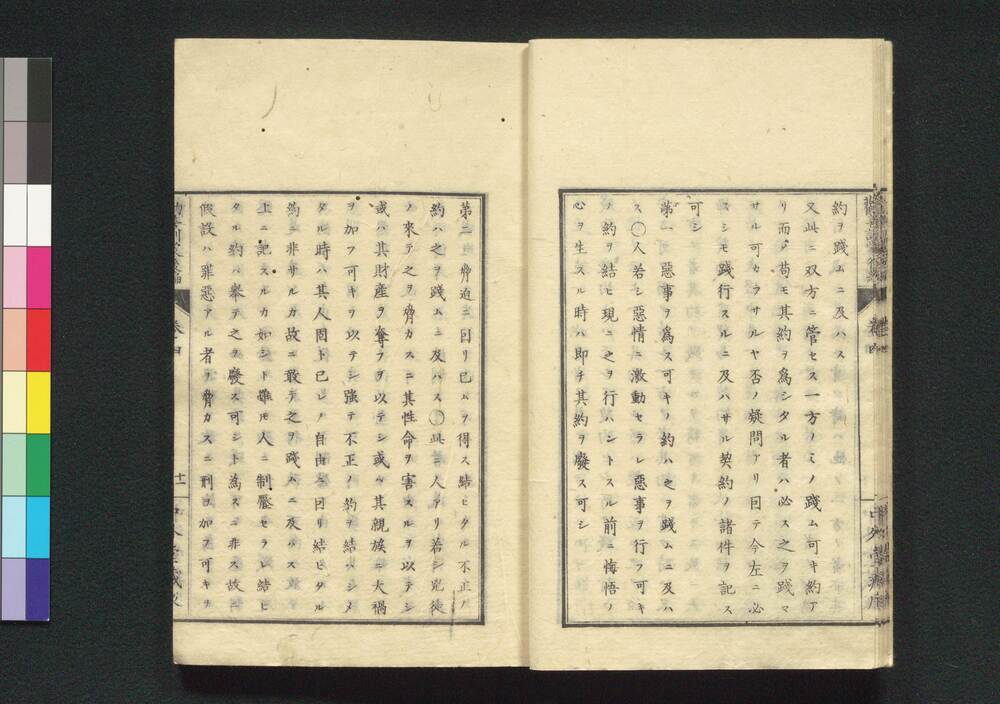 約ヲ踐ムニ及ハス
又此ニ双方ニ管セス一方ノミノ踐ム可キ約ア
リ而メ苟モ其約ヲ爲シタル者ハ必ス之ヲ踐マ
サル可カラサルヤ否ノ疑問アリ因テ今左ニ必
スシモ踐行スルニ及ハサル契約ノ諸件ヲ記ス
可シ
第一 惡事ヲ爲ス可キノ約ハ之ヲ踐ムニ及ハ
ス〇人若シ惡情ニ激動セラレ惡事ヲ行フ可キ
ノ約ヲ結ヒ現ニ之ヲ行ハントスル前ニ悔悟ノ
心ヲ生スル時ハ即チ其約ヲ廢ス可シ
第二 脅迫ニ因リ已ムヲ得ス結ヒタル不正ノ
約ハ之ヲ踐ムニ及ハス〇此ニ人アリ若シ兇徒
ノ來テ之ヲ脅カスニ其性命ヲ害スルヲ以テシ
或ハ其財産ヲ奪フヲ以テシ或ハ其親族ニ大禍
ヲ加フ可キヲ以テシ強テ不正ノ約ヲ結ハシメ
タル時ハ其人固ト己レノ自由ニ因リ結ヒタル
約ニ非サルカ故ニ敢テ之ヲ踐ムニ及ハス
上ニ記スルカ如シト雖モ人ニ制壓セラレ結ヒ
タル約ハ擧テ之ヲ廢ス可シト爲スニ非ス故ニ
假設ハ罪惡アル者ヲ脅カスニ刑ヲ加フ可キヲ
卷四
十二